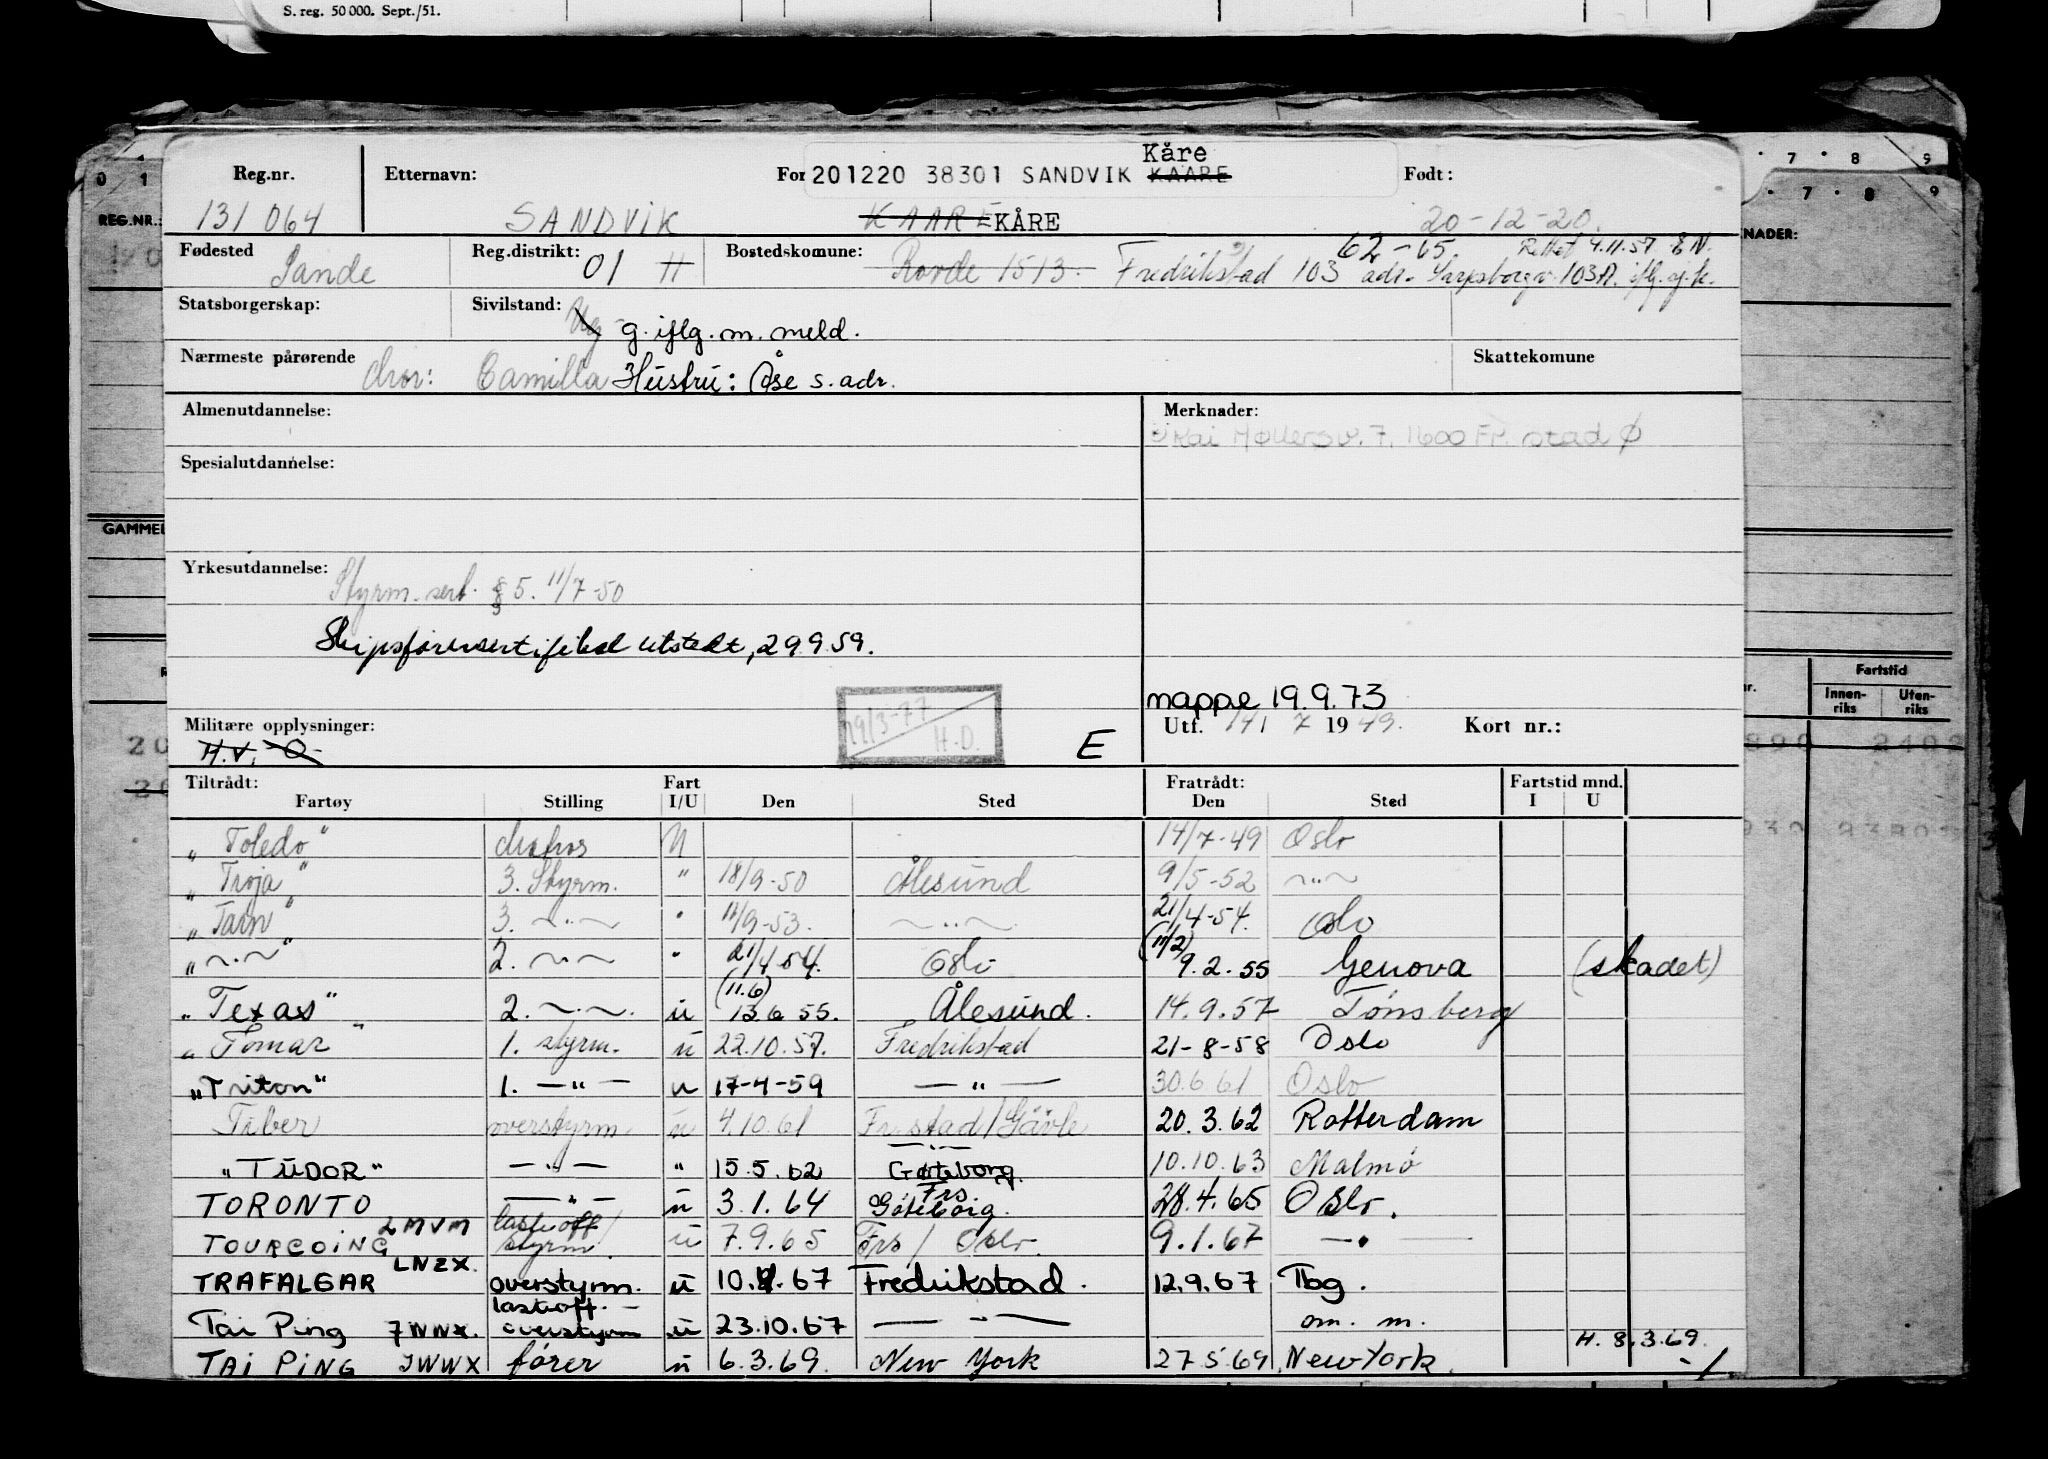 S. reg. 50 000. Sept./51.
Reg.nr. Etternavn: For 201220 38301 SANDVIK KAARE Kåre Født:
131 064 SANDVIK KAARE KÅRE 20-12-20.
Fødested Sande Reg.distrikt: 01 H Bostedskomune: Rovde 1513. Fredrikstad 103 62-65. Rettet 4.11.57 E N.
adr. Sarpsborgv. 103A.
Statsborgerskap: Sivilstand: Ug g. iflg. m. meld.
Nærmeste pårørende Mor: Camilla Hustru: Åse s. adr. Skattekomune
Almenutdannelse: Merknader:
Kai Møllersv. 7, 1600 Fr.stad Ø
Spesialutdannelse:
Yrkesutdannelse: Styrm. sert. § 5. 11/7-50
Skipsførersertifikat utstedt, 29.9.59.
mappe 19.9.73
Militære opplysninger: 29/3-77 H.D. E Utf. 14/ 7 1949. Kort nr.:
H.V. O
Tiltrådt: Fart Fratrådt: Fartstid mnd.
Fartøy Stilling I/U Den Sted Den Sted I U
"Toledo" Matros U 14/7-49 Oslo
"Troja" 3. Styrm. " 18/9-50 Ålesund 9/5-52 -"-
"Tarn" 3. -"- " 11/9-53. -"- 21/4-54. Oslo
"-"-" 2. -"- " 21/4-54. Oslo (11/2) 9.2.55 Genova (skadet)
"Texas" 2. -"- u (11.6) 13.6.55. Ålesund. 14.9.57 Tønsberg
"Tomar" 1. styrm. u 22.10.57. Fredrikstad 21-8-58 Oslo
"Triton" 1. -"- u 17-4-59 -"- 30.6.61 Oslo
Tiber overstyrm. u 4.10.61 Fr.stad/Gävle 20.3.62 Rotterdam
"TUDOR" -"- " 15.5.62 -"- Gøteborg. 10.10.63 Malmö
TORONTO -"- u 3.1.64 Frs Göteborg. 28.4.65 Oslo.
TOURCOING LMVM lastoff/styrm. u 7.9.65 Frs / Oslo. 9.1.67 -"-
TRAFALGAR LNZX. overstyrm. u 10.4.67 Fredrikstad. 12.9.67 Tbg.
Tai Ping JWWX. lastoff. overstyrm u 23.10.67 -"- om. m. H. 8.3.69.
TAI PING JWWX fører u 6.3.69. New York 27.5.69. New York. -/
REG.NR.:
GAMMEL
Fartstid
Innenriks Utenriks